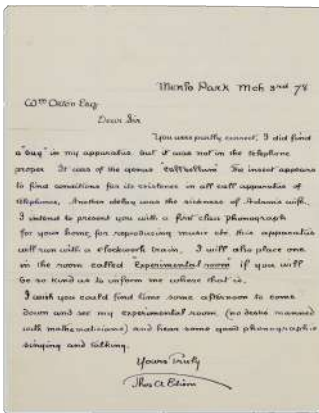 Menlo Park Mch 3rd 78
Wm Orton Esq
Dear Sir
You were partly correct, I did find
a "bug" in my apparatus, but it was not in the telephone
proper It was of the genus "callbellum" The insect appears
to find conditions for its existence in all call apparatus of
telephones. Another delay was the sickness of Adams wife.
I intend to present you with a first class phonograph
for your home, for reproducing music etc. this apparatus
will run with a clockwork train. I will also place one
in the room called "Experimental room" if you will
be so kind as to inform me where that is.
I wish you could find time some afternoon to come
down and see my experimental room (no desks manned
with mathematicians) and hear some good phonographic
singing and talking.
Yours Truly
Thos A Edison